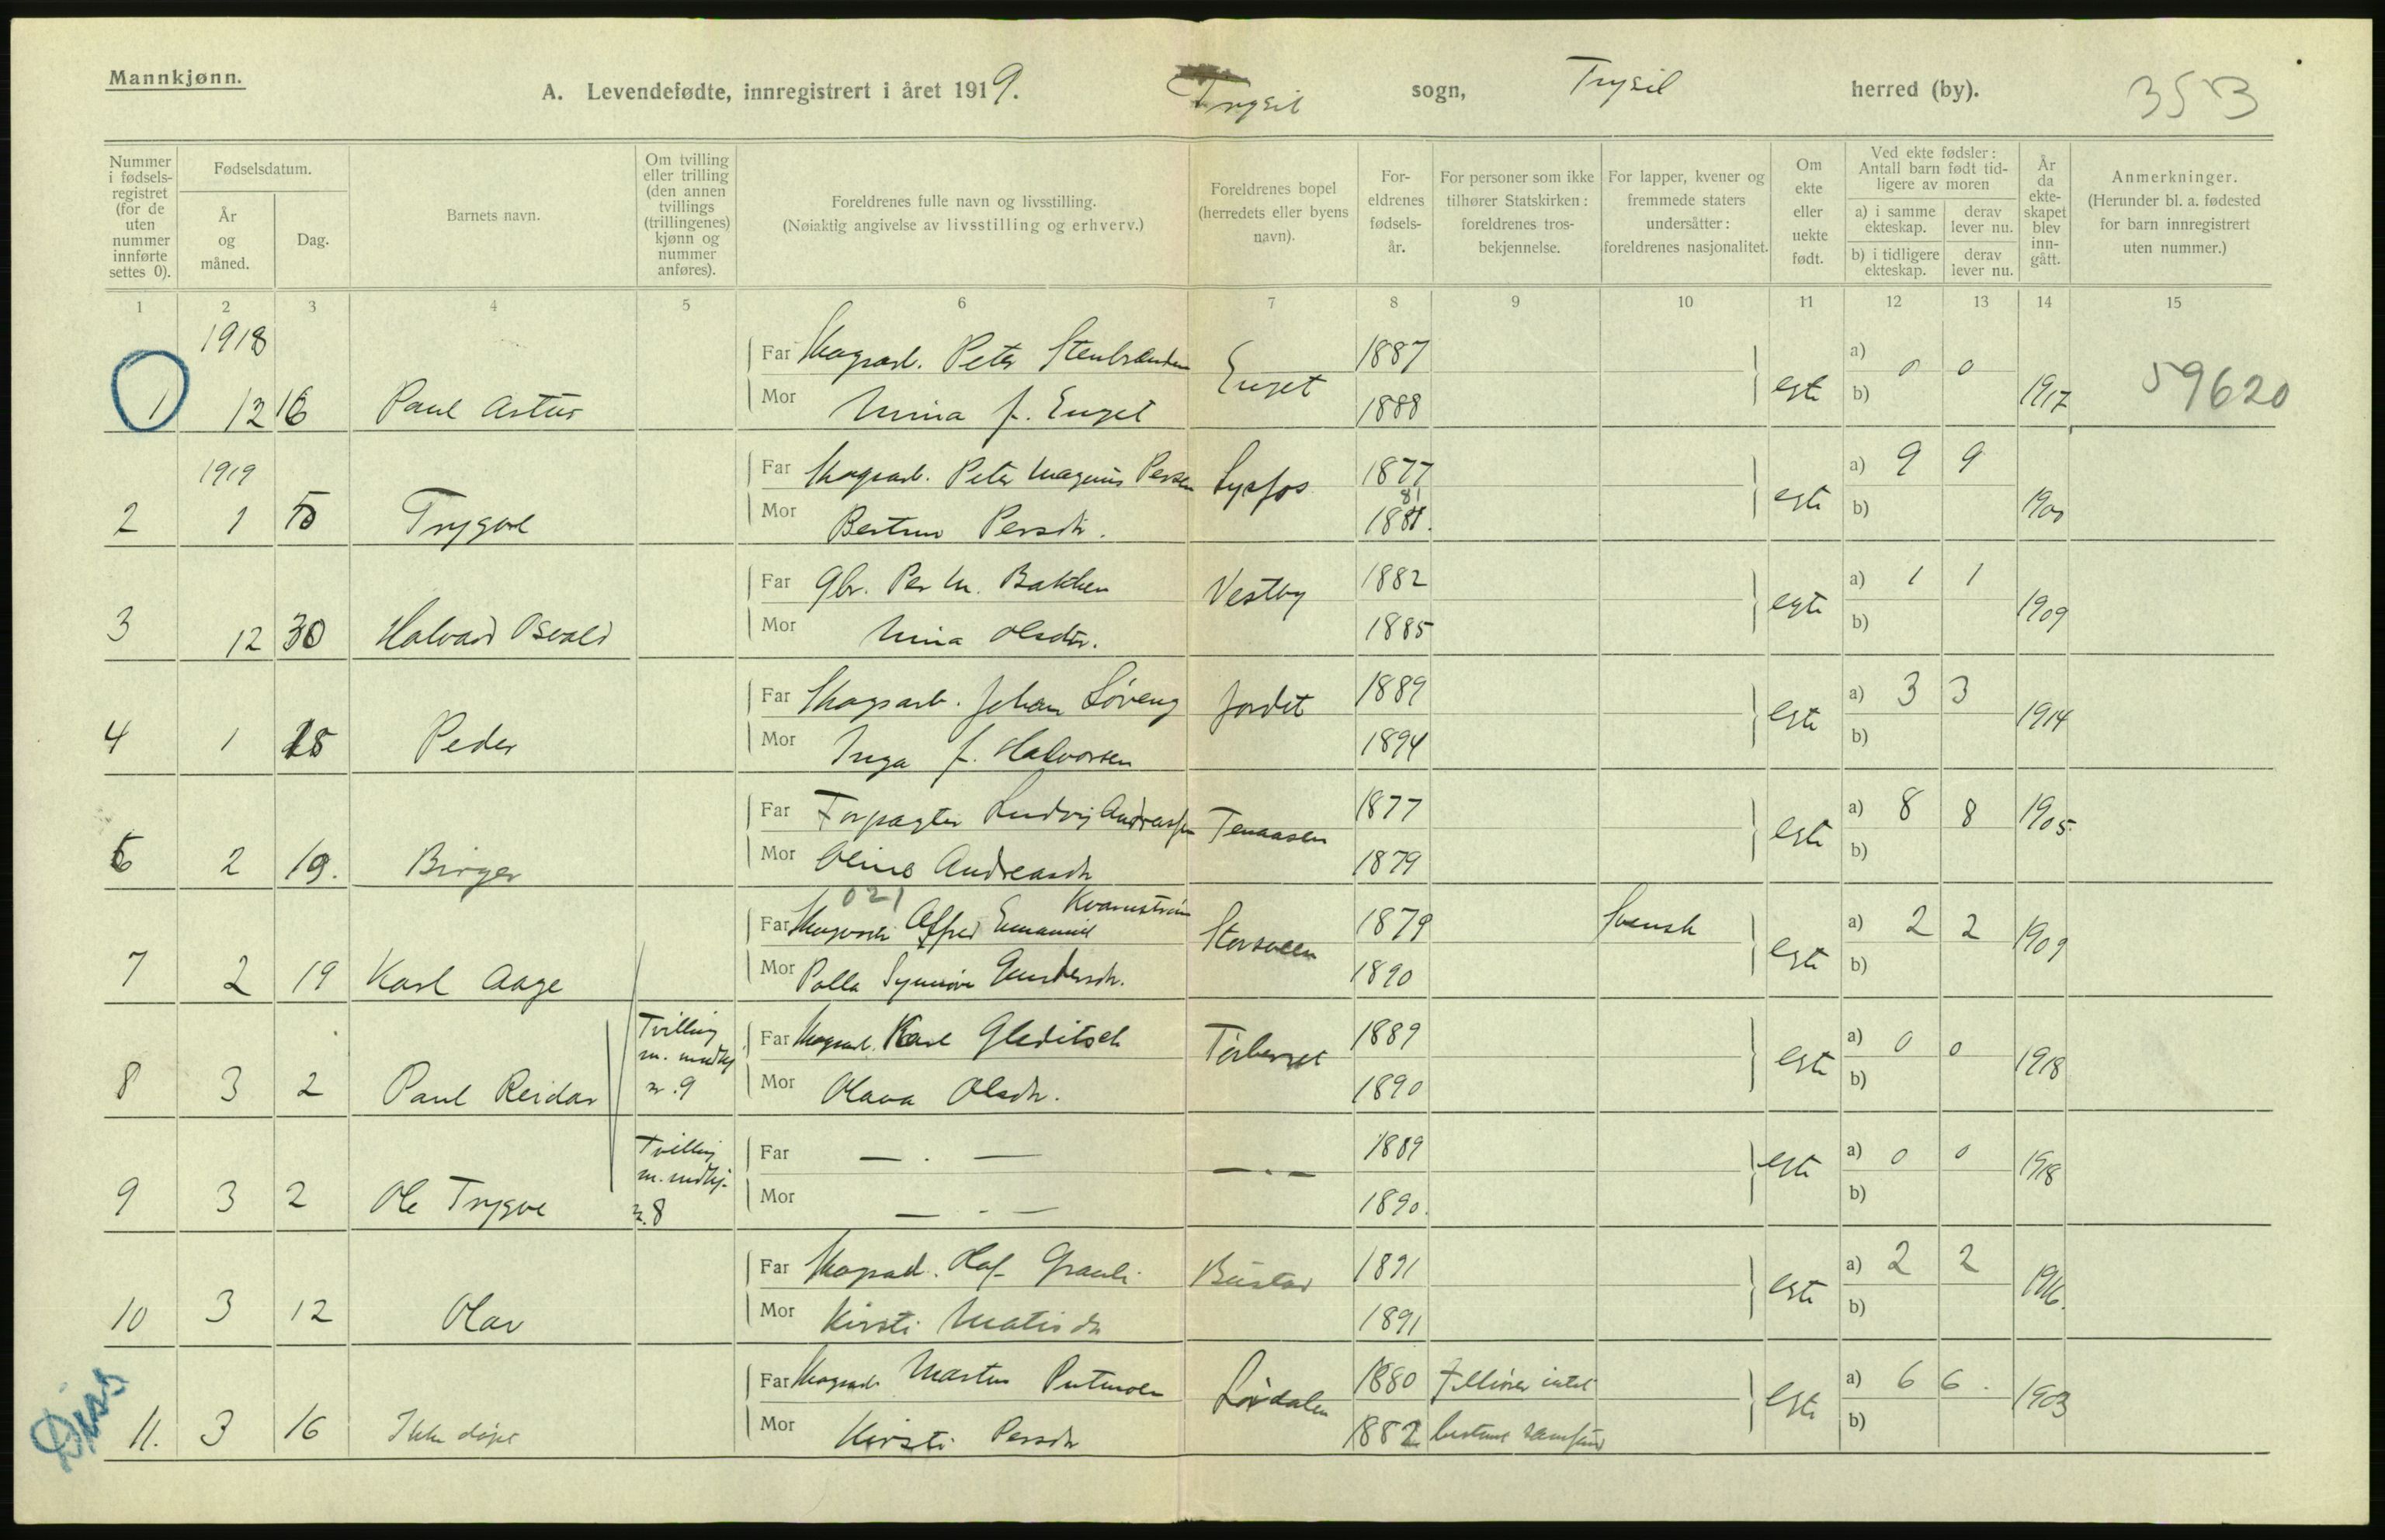 Mannkjønn.
A. Levendefødte, innregistrert i året 1919. Trysil sogn, Trysil herred (by). 353
Nummer i fødselsregistret (for de uten nummer innførte settes 0).
Fødselsdatum.
År og måned.
Dag.
Barnets navn.
Om tvilling eller trilling (den annen tvillings (trillingenes) kjønn og nummer anføres).
Foreldrenes fulle navn og livsstilling.
(Nøiaktig angivelse av livsstilling og erhverv.)
Foreldrenes bopel (herredets eller byens navn).
Foreldrenes fødselsår.
For personer som ikke tilhører Statskirken: foreldrenes trosbekjennelse.
For lapper, kvener og fremmede staters undersåtter: foreldrenes nasjonalitet.
Om ekte eller uekte født.
Ved ekte fødsler: Antall barn født tidligere av moren
a) i samme ekteskap. derav lever nu.
b) i tidligere ekteskap. derav lever nu.
År da ekteskapet blev inngått.
Anmerkninger.
(Herunder bl. a. fødested for barn innregistrert uten nummer.)
1 2 3 4 5 6 7 8 9 10 11 12 13 14 15
1918
Far Skogsarb. Peter Enget 1887 a) 0 0
1 12 16 Paul Artur Mor f. Enget 1888 egte b) 1917 59620
1919
Far Skogsarb. Peter Magnus Persen 1877 a) 9 9
2 1 5 Trygve Mor Persdtr. 1881. egte b)
Far Gbr. Per M. Bakken Vestby 1882 a) 1 1
3 12 30 Halvard Osvald Mor Olsdtr. 1885 egte b) 1909
Far Skogsarb. Johan Løveng Jordet 1889 a) 3 3
4 1 Peder Mor Inga f. Halvorsen 1894 egte b) 1914
Far Forpagter Ludvig Andreassen Tenaasen 1877 a) 8 8 1905
6 2 19. Birger Mor Andreasdtr 1879 egte b)
021
Far Alfred Emanuel Kvarnström 1879 Svensk a) 2 2 1909
7 2 19 Karl Aage Mor Synnøve 1890 egte b)
Tvilling m. nr. 9
Far Skogsarb. Karl Gleditsch 1889 a) 0 0
8 3 2 Paul Reidar Mor Olava Olsdtr. 1890 egte b) 1918
Tvilling m. nr. 8
Far — . — — . — 1889 a) 0 0
9 3 2 Ole Trygve Mor — . — 1890. egte b) 1918
Far Skogsarb. Olaf Bustad 1891 a) 2 2
10 3 12 Olav Mor Kirsti 1891 egte b) 1916.
Far Skogsarb Martin Lørdalen 1880 Tilhører intet a) 6 6. 1903
Diss 11. 3 16 Ikke døpt Mor Kirsti Persdtr 1882 bestemt samfund egte b)